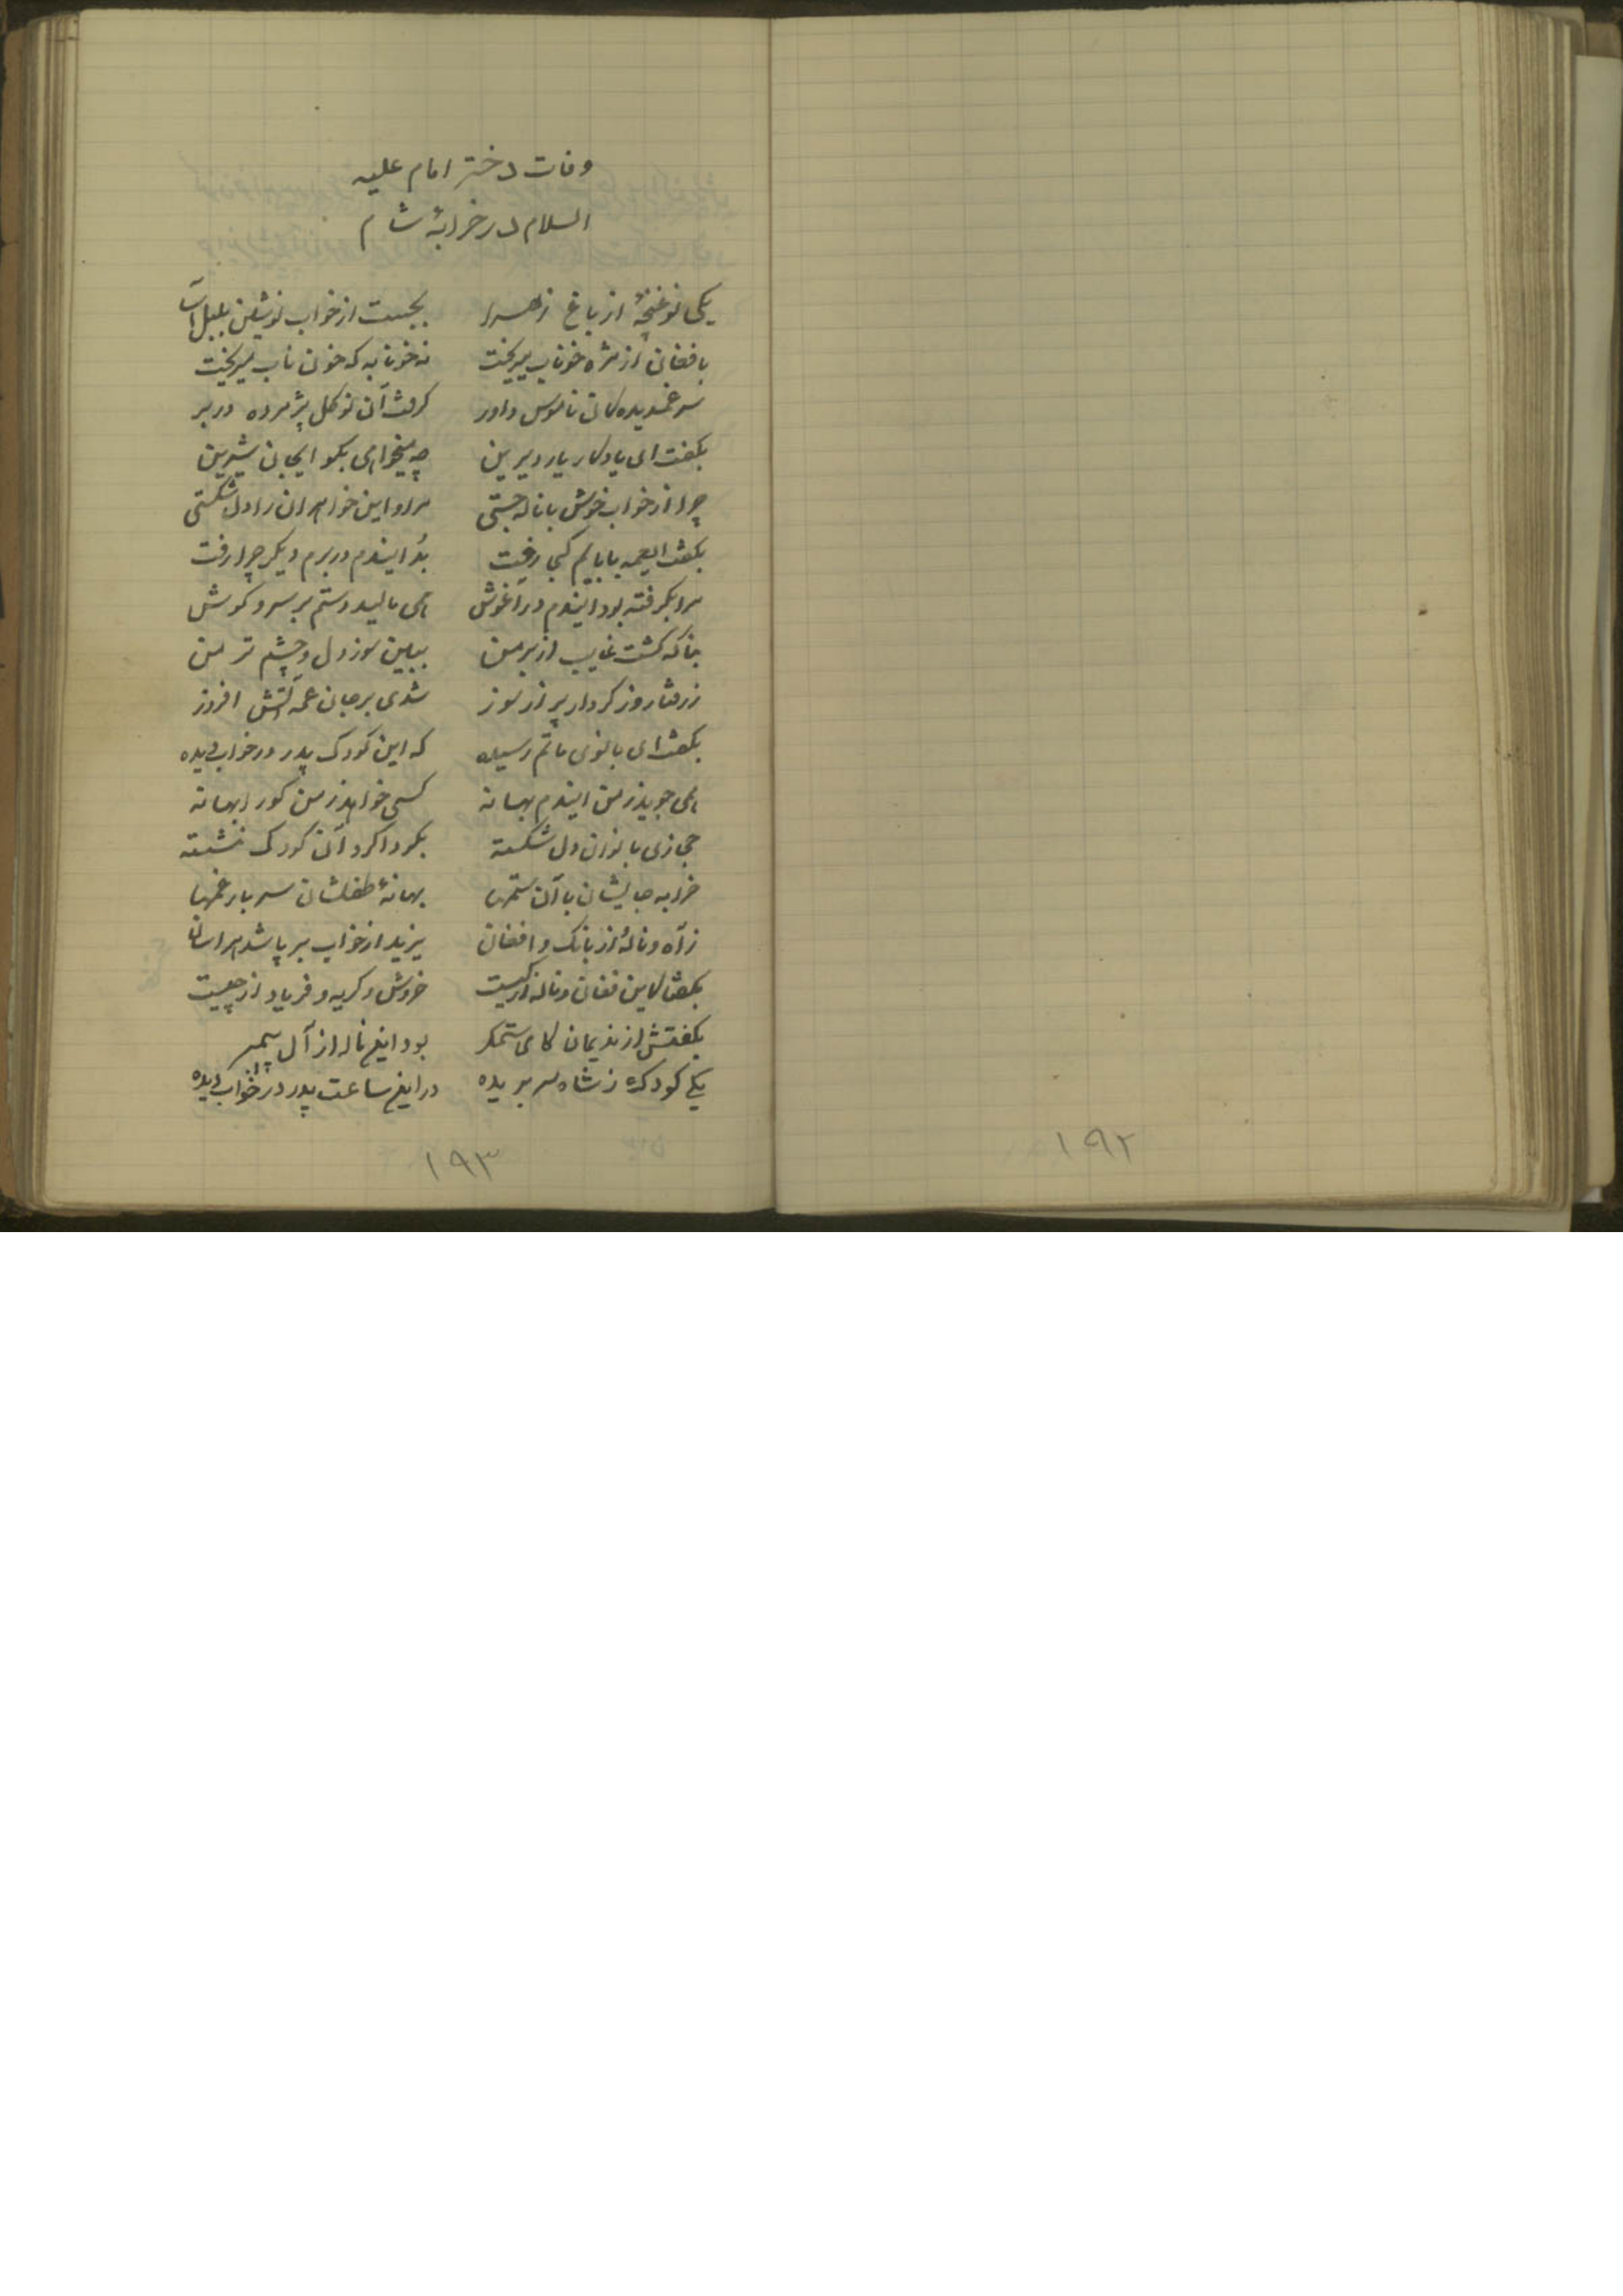 وفات دختر امام علیه
السلام در خرابهٔ شام
یکی نوغنچهٔ از باغ زهرا بجست از خواب نوشین بلبل آسا
بافغان از مژه خوناب میریخت نه خونابه که خون ناب میریخت
سر غمدیده‌گان ناموس داور گرفت آن نوگل پژمرده در بر
بگفت ای یادگار یار دیرین چه میخواهی بگو ایجان شیرین
چرا از خواب خوش با ناله جستی مرا و این خواهران را دل شکستی
بگفت ایعمه بابایم کجا رفت بُد ایندم در برم دیگر چرا رفت
مرا بگرفته بود ایندم در آغوش همی مالید دستم بر سر و گوش
بناگه گشت غایب از بر من ببین سوز دل و چشم تر من
ز رفتار و ز کردار پر از سوز شدی بر جان عمه آتش افروز
بگفت ای بانوی ماتم رسیده که این کودک پدر در خواب دیده
همی جوید ز من ایندم بهانه کسی خواهد ز من کور ابهانه
حجازی بانوان دل شکسته بگرداگرد آن کودک نشسته
خرابه جایشان با آن ستمها بهانهٔ طفلشان سر بار غمها
ز آه و نالهٔ از بانگ و افغان یزید از خواب بر پا شد هراسان
بگفتا کاین فغان و ناله از کیست خروش و گریه و فریاد از چیست
بگفتش از ندیمان کای ستمگر بود اینم ناله از آل پیمبر
یکی کودک ز شاه سر بریده در این ساعت پدر در خواب دیده
۱۹۳
۱۹۲